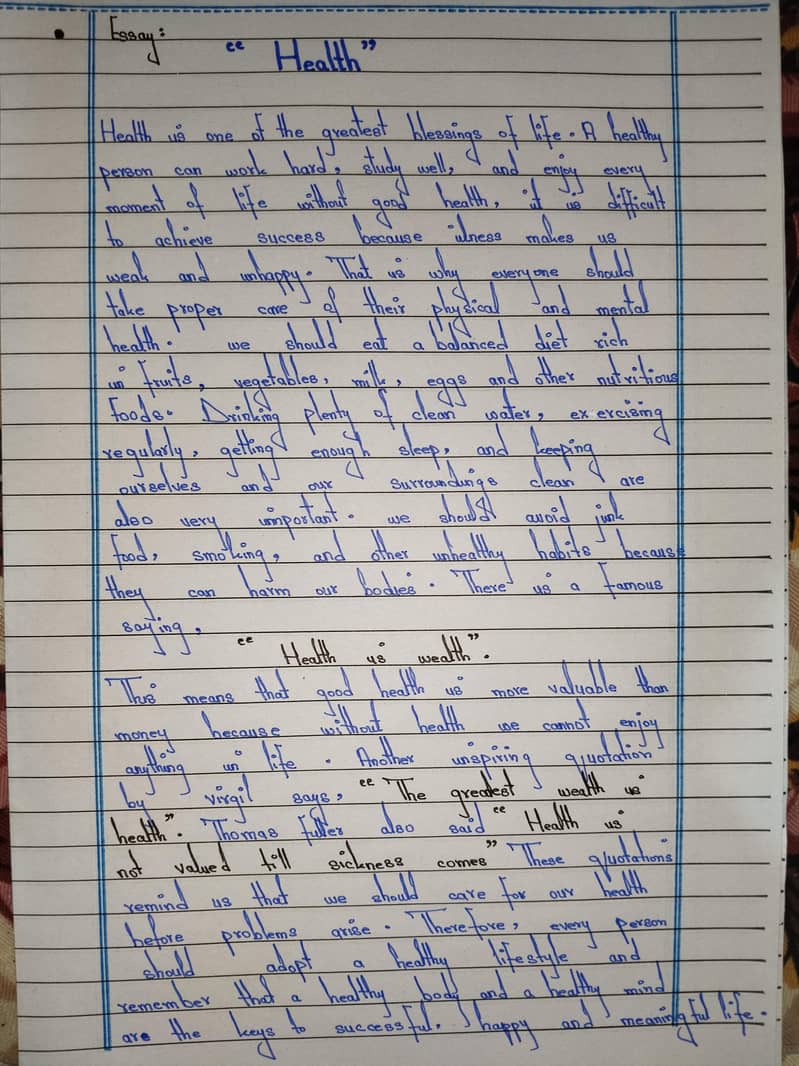 Essay:
"Health"
Health is one of the greatest blessings of life. A healthy
person can work hard, study well, and enjoy every
moment of life without good health, it is difficult
to achieve success because illness makes us
weak and unhappy. That is why everyone should
take proper care of their physical and mental
health. we should eat a balanced diet rich
in fruits, vegetables, milk, eggs and other nutritious
foods. Drinking plenty of clean water, exercising
regularly, getting enough sleep, and keeping
ourselves and our surroundings clean are
also very important. we should avoid junk
food, smoking, and other unhealthy habits because
they can harm our bodies. There is a famous
saying,
"Health is wealth".
This means that good health is more valuable than
money because without health we cannot enjoy
anything in life. Another inspiring quotation
by virgil says, "The greatest wealth is
health". Thomas fuller also said "Health is
not valued till sickness comes" These quotations
remind us that we should care for our health
before problems arise. Therefore, every person
should adopt a healthy lifestyle and
remember that a healthy body and a healthy mind
are the keys to successful, happy and meaningful life.